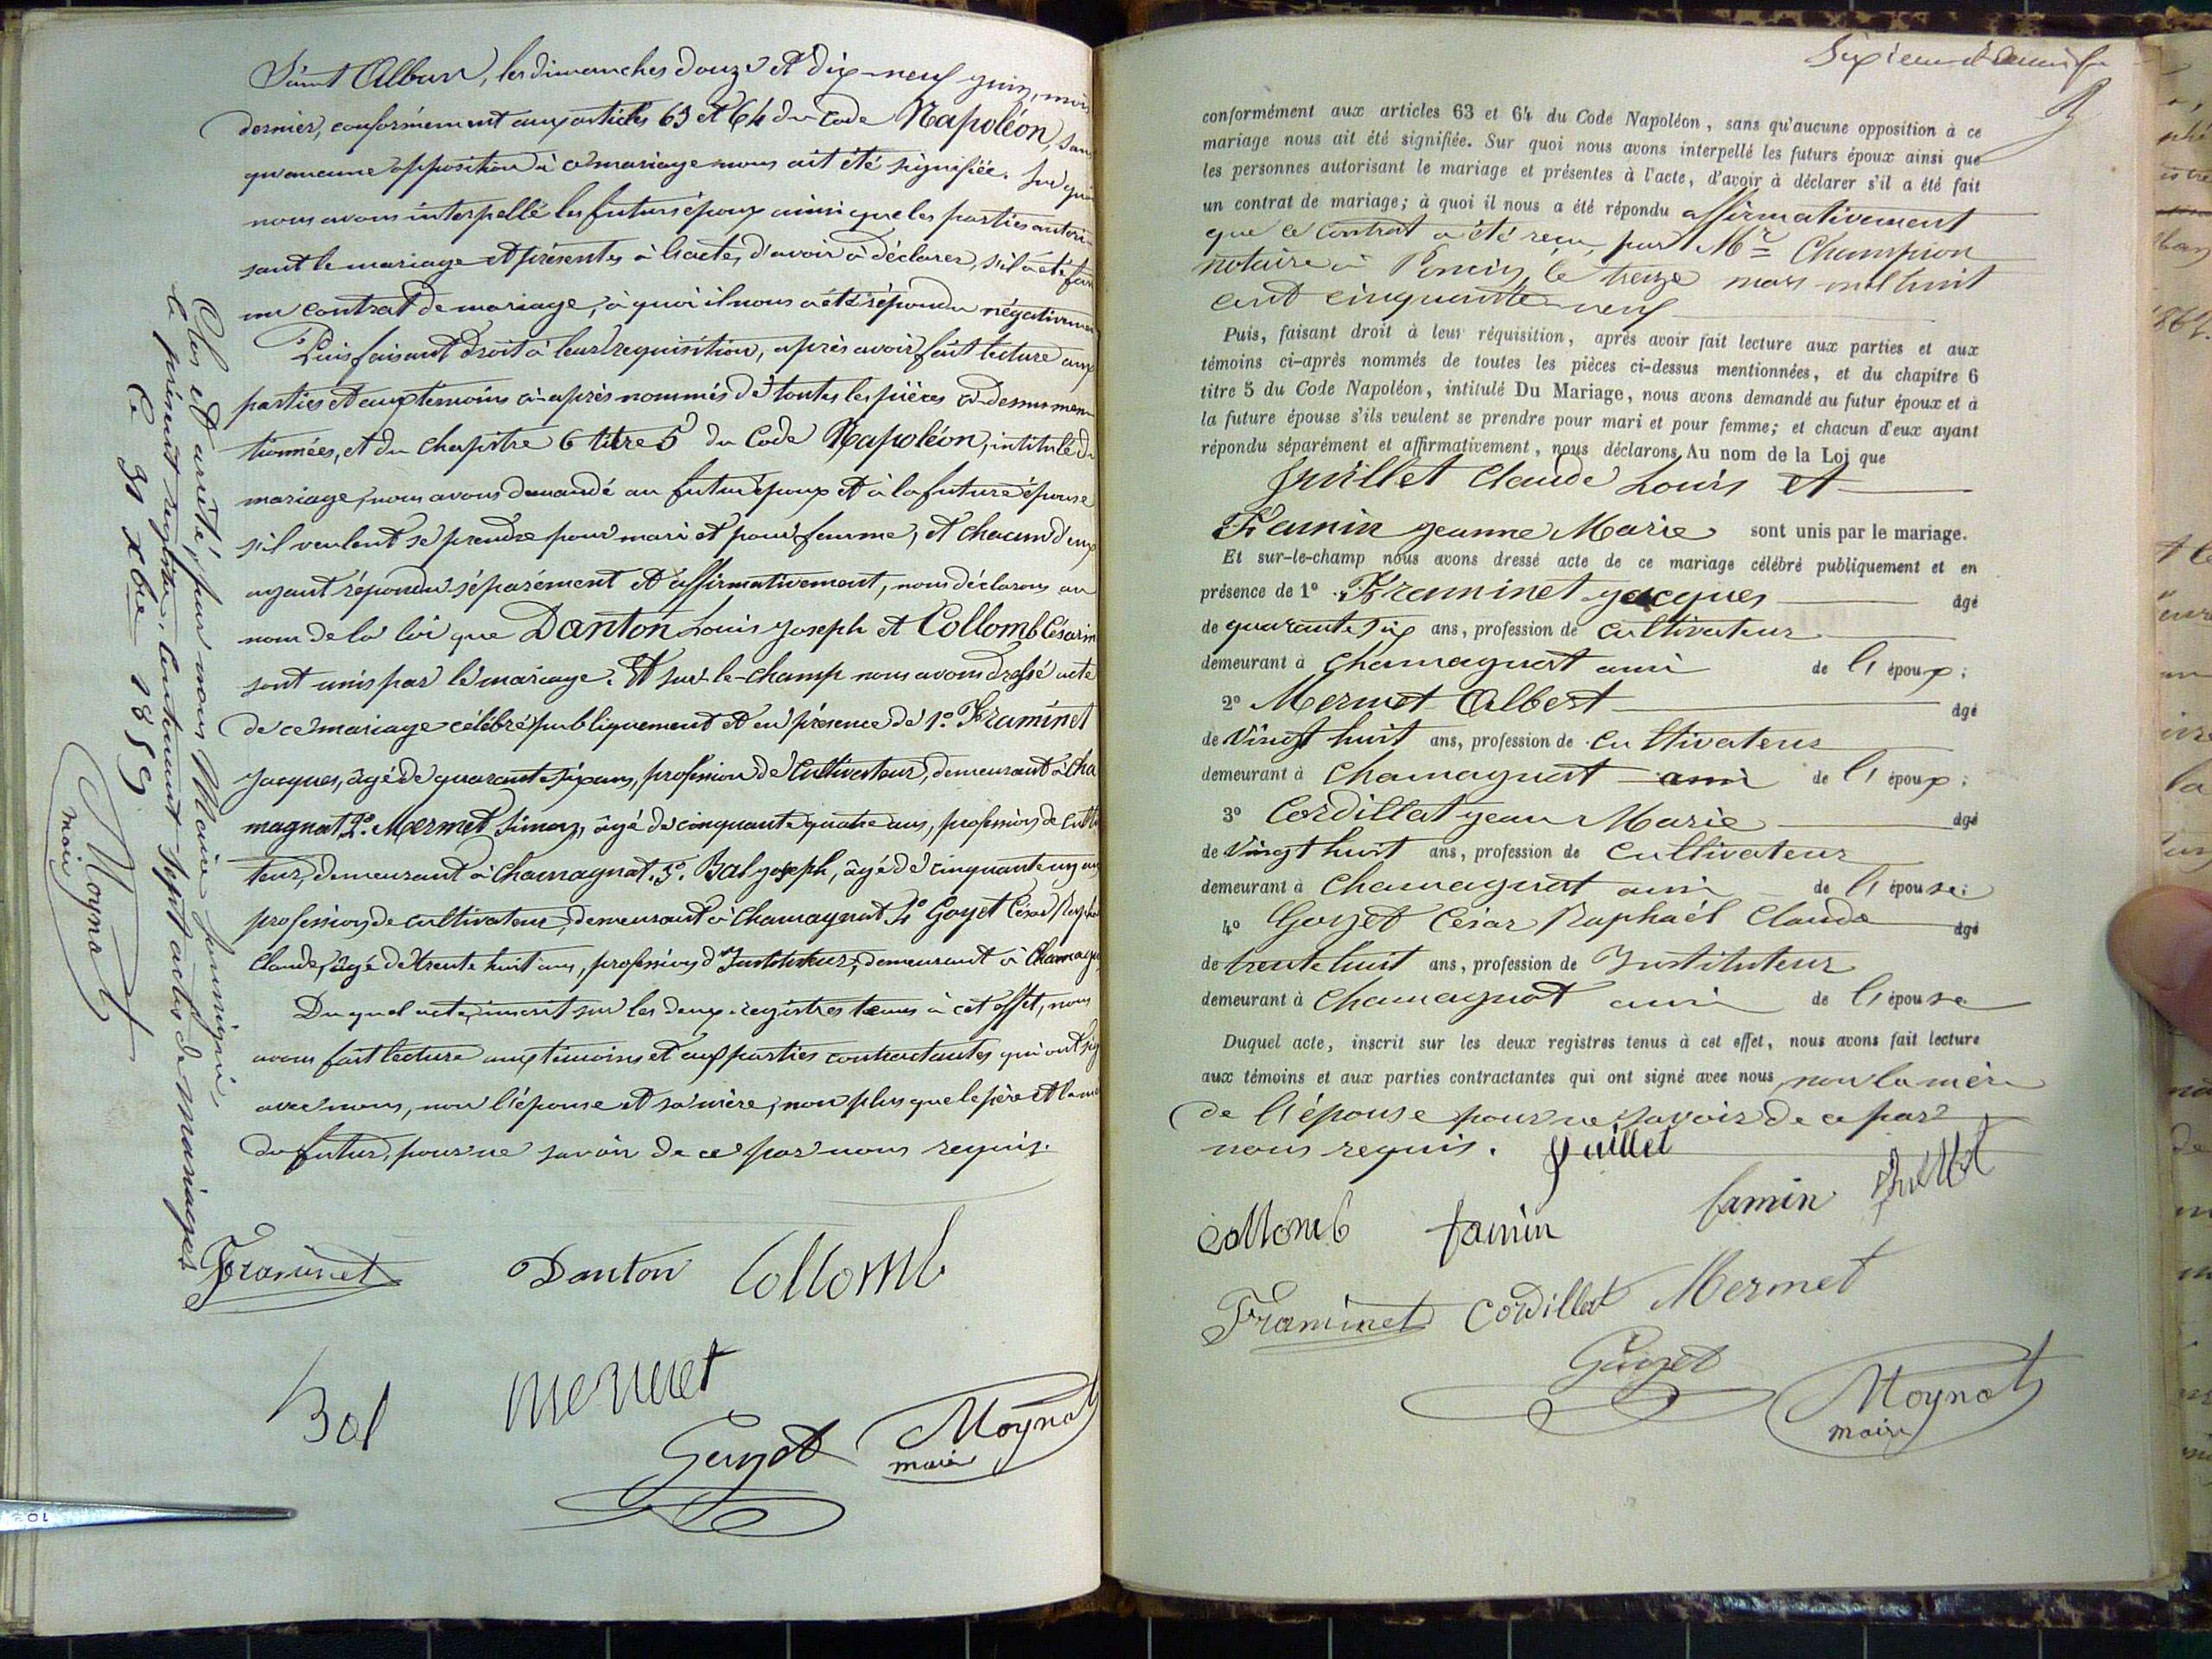 Saint Alban, les dimanches douze et dix-neuf juin, mois
dernier, conformément aux articles 63 et 64 du Code Napoléon, sans
qu'aucune opposition à ce mariage nous ait été signifiée. Sur quoi
nous avons interpellé les futurs époux ainsi que les parties autori-
sant le mariage et présentes à l'acte, d'avoir à déclarer, s'il a été fait
un contrat de mariage, à quoi il nous a été répondu négativement
Puis faisant droit à leur requisition, après avoir fait lecture aux
parties et aux temoins ci-après nommés de toutes les pièces ci-dessus men
tionnées, et du chapitre 6 titre 5 du Code Napoléon, intitulé du
mariage, nous avons demandé au futur époux et à la future épouse
s'il veulent se prendre pour mari et pour femme, et chacun d'eux
ayant répondu séparément et affirmativement, nous déclarons au
nom de la loi que Danton Louis Joseph et Collomb Césarin
sont unis par le mariage. Et sur-le-champ nous avons dressé acte
de ce mariage célébré publiquement et en présence de 1º. Framinet
Jacques, âgé de quarante six ans, profession de Cultivateur, demeurant à Cha
magnat 2º. Mermet Simon, âgé de cinquante quatre ans, profession de Culti
teur, demeurant à Chamagnat. 3º. Bal Joseph, âgé de cinquante un ans
profession de cultivateur, demeurant à Chamagnat 4º Goyet César Raphael
Claude, âgé de trente huit ans, profession d'Instituteur, demeurant à Chamagn
Duquel acte, inscrit sur les deux registres tenus à cet effet, nous
avons fait lecture aux témoins et aux parties contractantes qui ont sig
avec nous, non l'épouse et sa mère, non plus que le père et la mè
du futur, pour ne savoir de ce par nous requis.
Framinet Danton Collomb
Bal mermet
Goyet Moynat
maire
Clos et arrêté, par nous Maire soussigné,
le présent registre, contenant sept actes de mariages
Ce 31 xbre 1859
Moynat
maire
conformément aux articles 63 et 64 du Code Napoléon, sans qu'aucune opposition à ce
mariage nous ait été signifiée. Sur quoi nous avons interpellé les futurs époux ainsi que
les personnes autorisant le mariage et présentes à l'acte, d'avoir à déclarer s'il a été fait
un contrat de mariage; à quoi il nous a été répondu affirmativement
que ce contrat a été reçu par Mr Champion
notaire à Poncin, le treize mars mil huit
cent cinquante-neuf
Puis, faisant droit à leur réquisition, après avoir fait lecture aux parties et aux
témoins ci-après nommés de toutes les pièces ci-dessus mentionnées, et du chapitre 6
titre 5 du Code Napoléon, intitulé Du Mariage, nous avons demandé au futur époux et à
la future épouse s'ils veulent se prendre pour mari et pour femme; et chacun d'eux ayant
répondu séparément et affirmativement, nous déclarons Au nom de la Loi que
Juillet Claude Louis et
Famin Jeanne Marie sont unis par le mariage.
Et sur-le-champ nous avons dressé acte de ce mariage célébré publiquement et en
présence de 1º Framinet Jacques âgé
de quarante six ans, profession de Cultivateur
demeurant à Chamagnat ami de l'époux;
2º Mermet Albert âgé
de vingt huit ans, profession de Cultivateur
demeurant à Chamagnat ami de l'époux;
3º Cordillat Jean Marie âgé
de vingt huit ans, profession de Cultivateur
demeurant à Chamagnat ami de l'épouse;
4º Goyet César Raphaël Claude âgé
de trente huit ans, profession de Instituteur
demeurant à Chamagnat ami de l'épouse
Duquel acte, inscrit sur les deux registres tenus à cet effet, nous avons fait lecture
aux témoins et aux parties contractantes qui ont signé avec nous, non la mère
de l'épouse pour ne savoir de ce par
nous requis. Juillet
Collomb famin famin Juillet
Framinet Cordillat Mermet
Goyet
Moynat
maire